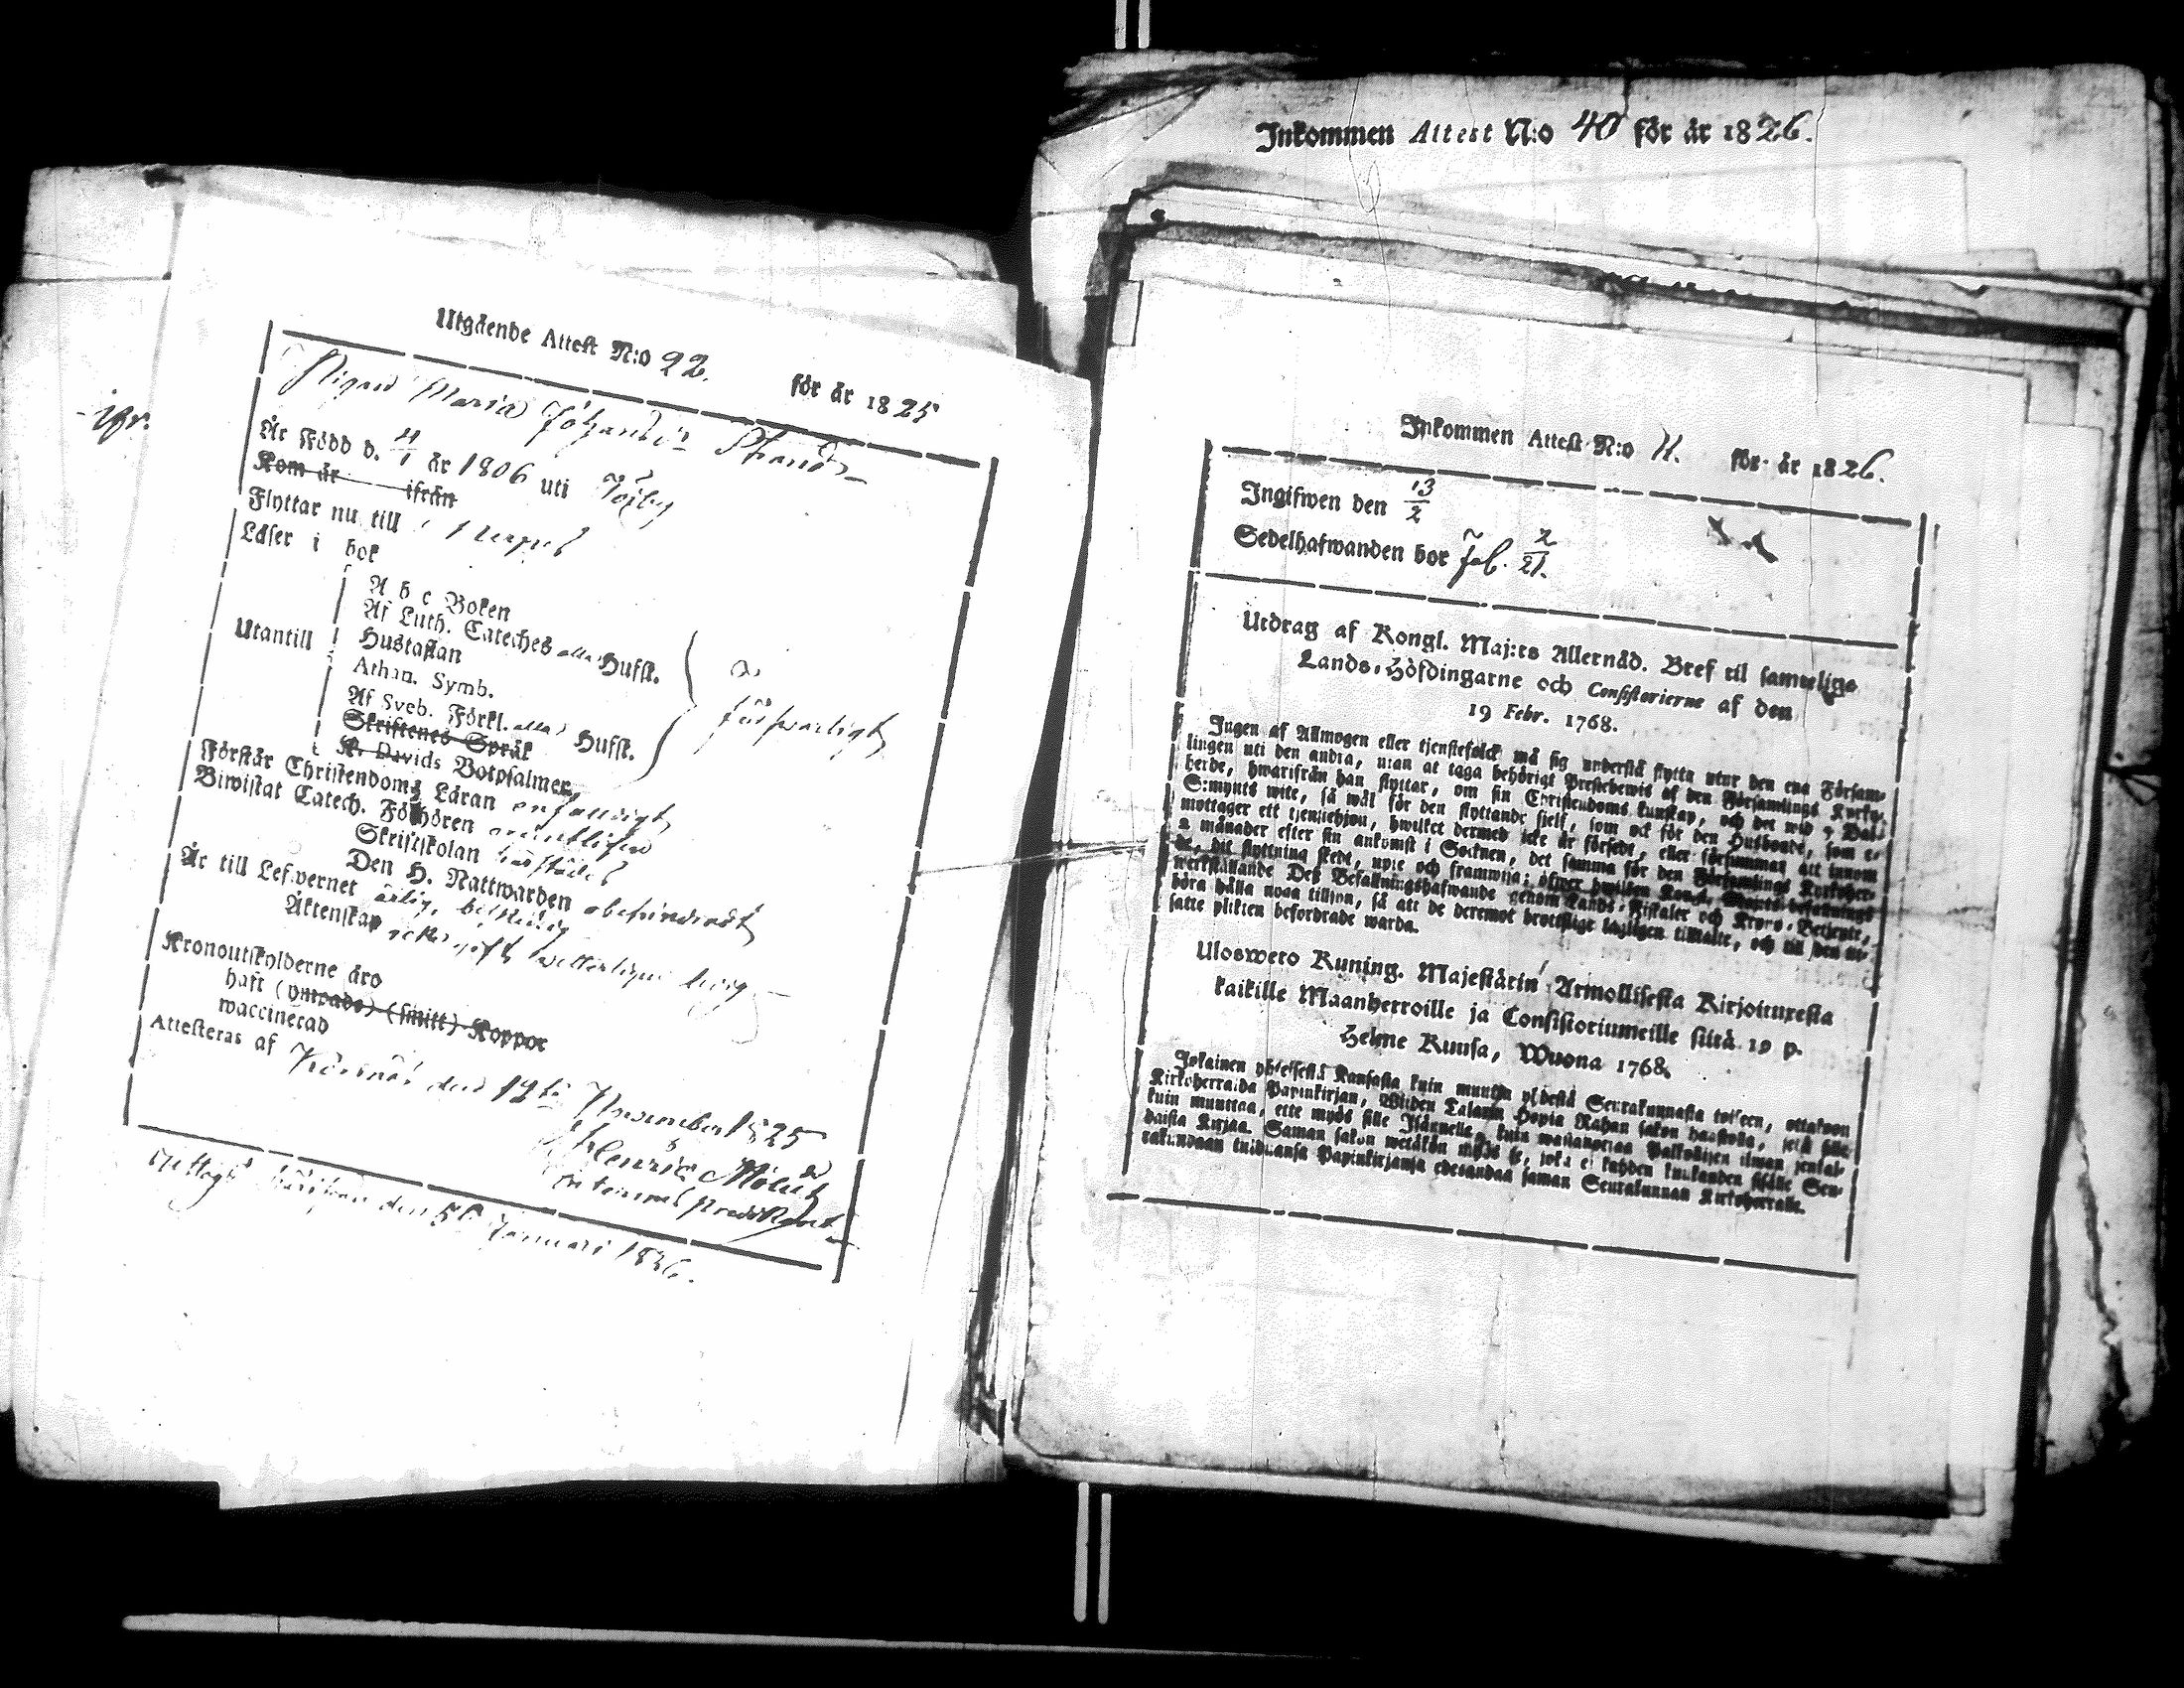 ifr.
Utgående Attest N:o 92. för år 1825
Pigan Maria Johansdr Strand
Är Född d. 4/1 år 1806 uti Töjby
Kom år ifrån
Flyttar nu till
Läser i bok
Utantill
A b c Boken
Af Luth. Cateches alla Husst.
Hustaflan
Athan. Symb.
Af Sveb. Förkl. alla Husst.
Skriftenes Språk
K. Davids Botpsalmer,
förswarligt
Förstår Christendoms Läran enfaldigt
Biwistat Catech. Förhören ordentligen
Skriftskolan härstädes
Den H. Nattwarden obehindradt
Är till Lefwernet ärlig, beskedlig
Äktenskap icke gift, wetterligen ledig
Kronoutskylderne äro
haft (ympade) (smitt) Koppor
waccinerad
Attesteras af Korsnäs den 12te November 1825
Henric
Januari 1826.
Inkommen Attest N:o 40 för år 1826.
Inkommen Attest N:o 11. för år 1826.
Ingifwen den 13/2
Sedelhafwanden bor Töjb. 2/21.
Utdrag af Kongl. Maj:ts Allernåd. Bref til samtelige
Lands-Höfdingarne och Consistorierne af den
19 Febr. 1768.
Ingen af Allmogen eller tjenstefolck må sig understå flytta utur den ena Försam-
lingen uti den andra, utan at taga behörigt Prestebewis af den Församlings Kyrko-
herde, hwarifrån han flyttar, om sin Christendoms kunskap, och det wid 5 Dal.
S:mynts wite, så wäl för den flyttande sjelf, som ock för den Husbonde, som e-
mottager ett tjenstehjon, hwilket dermed icke är försedt, eller försummar att innom
2 månader efter sin ankomst i Socknen, det samma för den Församlings Kyrkoher-
de, dit flyttning skedt, upte och framwisa; öfwer hwilken Kongl. Maj:ts befallnings
werkställande Des Befallningshafwande genom Lands-Fiskaler och Krono-Betjente,
böra hålla noga tillsyn, så att de deremot brottslige lagligen tilltalte, och till den ut-
satte plikten befordrade warda.
Uloswero Kuning. Majestärin Armollisesta Kirjoituxesta
kaikille Maanherroille ja Consistoriumeille siitä 19 p.
Helme Kuusa, Wuona 1768.
Jokainen yhteisestä Kansasta kuin muutta yhdestä Seurakunnasta toiseen, ottakoon
Kirkoherralda Papinkirjan, Wiiden Talarin Hopia Rahan sakon haastolla, sekä sille
kuin muuttaa, ette myös sille Isännelle, kuin wastanottaa Palkollisen ilman senkal-
daista Kirjaa. Saman sakon wetäkön myös se, joka ei kahden kuukauden sisälle Seu-
rakundaan tulduansa Papinkirjansa edesandaa saman Seurakunnan Kirkoherralle.